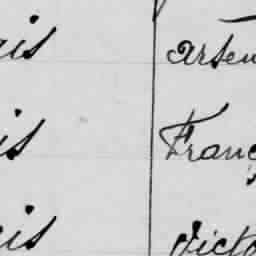 ais Arsen
is Franç
cis Victo